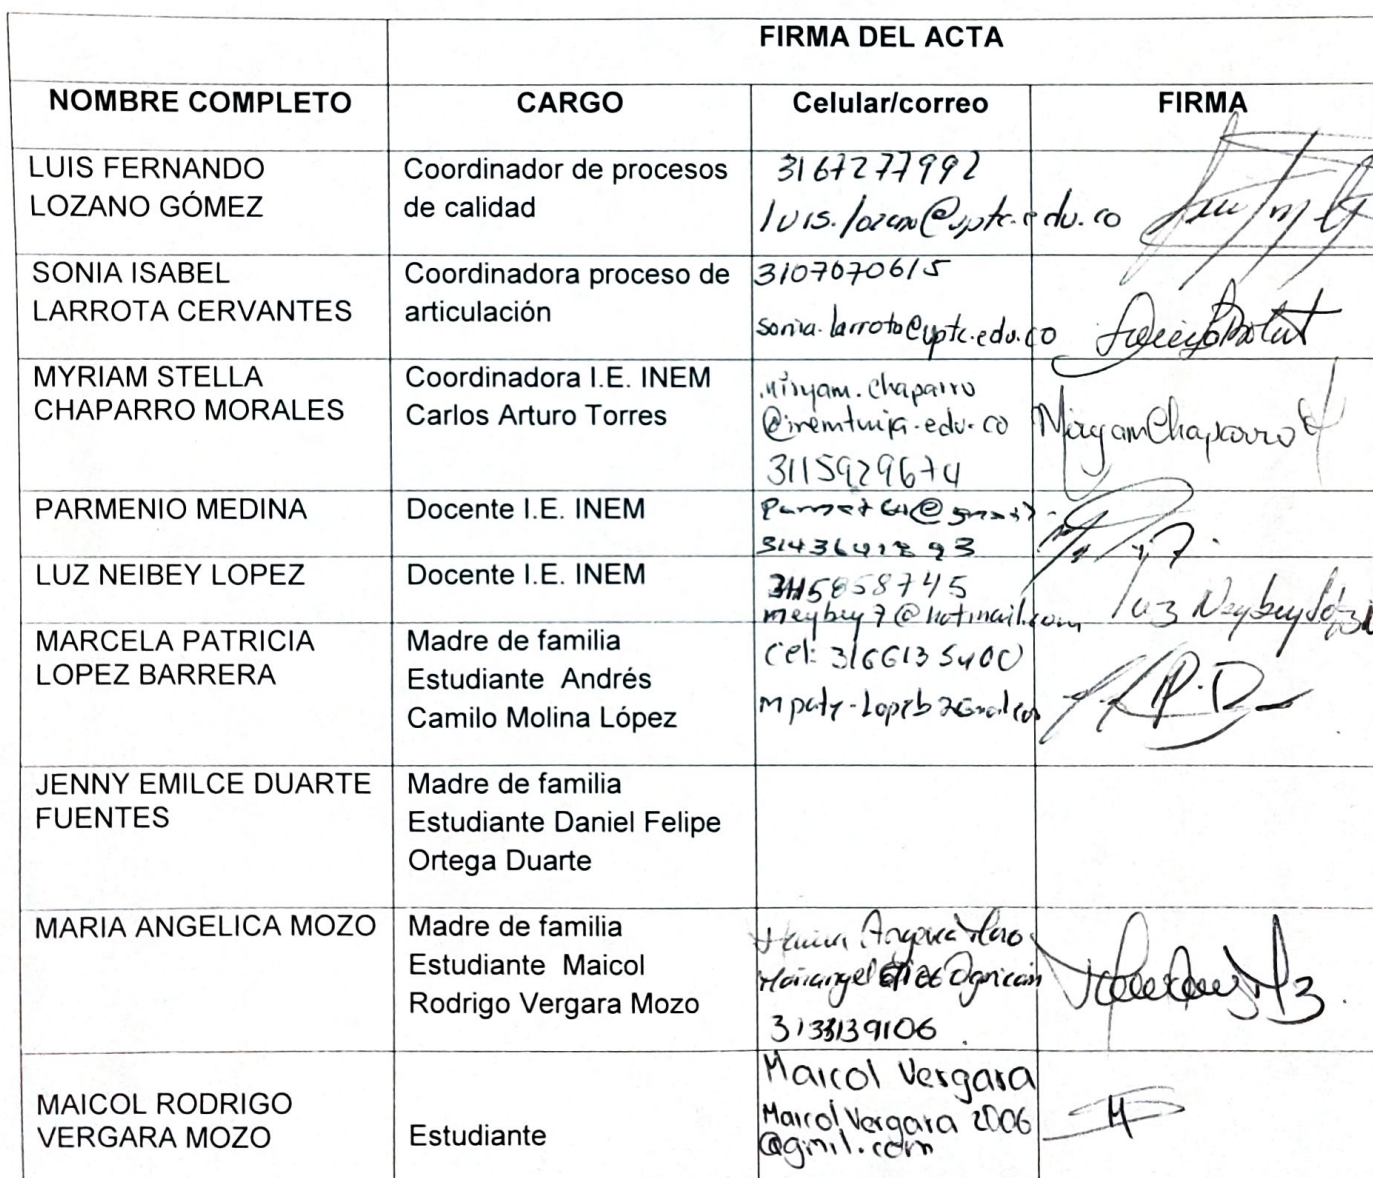 FIRMA DEL ACTA
NOMBRE COMPLETO CARGO Celular/correo FIRMA
LUIS FERNANDO
LOZANO GÓMEZ
Coordinador de procesos
de calidad
3167277992
luis.lozano@uptc.edu.co
SONIA ISABEL
LARROTA CERVANTES
Coordinadora proceso de
articulación
3107070615
sonia.larrota@uptc.edu.co
MYRIAM STELLA
CHAPARRO MORALES
Coordinadora I.E. INEM
Carlos Arturo Torres
miryam.chaparro
@inemtunja.edu.co
3115929674
Miryam Chaparro
PARMENIO MEDINA
Docente I.E. INEM
LUZ NEIBEY LOPEZ
Docente I.E. INEM
3115858745
meybey7@hotmail.com
Luz Neybey López
MARCELA PATRICIA
LOPEZ BARRERA
Madre de familia
Estudiante Andrés
Camilo Molina López
Cel: 3166135400
JENNY EMILCE DUARTE
FUENTES
Madre de familia
Estudiante Daniel Felipe
Ortega Duarte
MARIA ANGELICA MOZO
Madre de familia
Estudiante Maicol
Rodrigo Vergara Mozo
3133139106
MAICOL RODRIGO
VERGARA MOZO
Estudiante
Maicol Vergara
Maicol Vergara 2006
@gmil.com